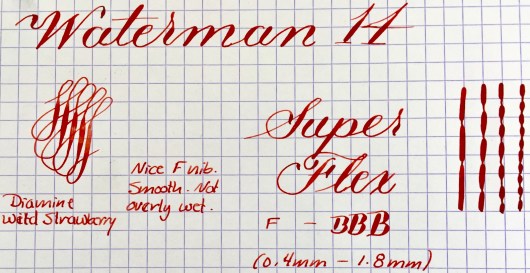 Waterman 14
Super
Flex
F - BBB
(0.4mm - 1.8mm)
Nice F nib.
Smooth. Not
overly wet.
Diamine
Wild Strawberry